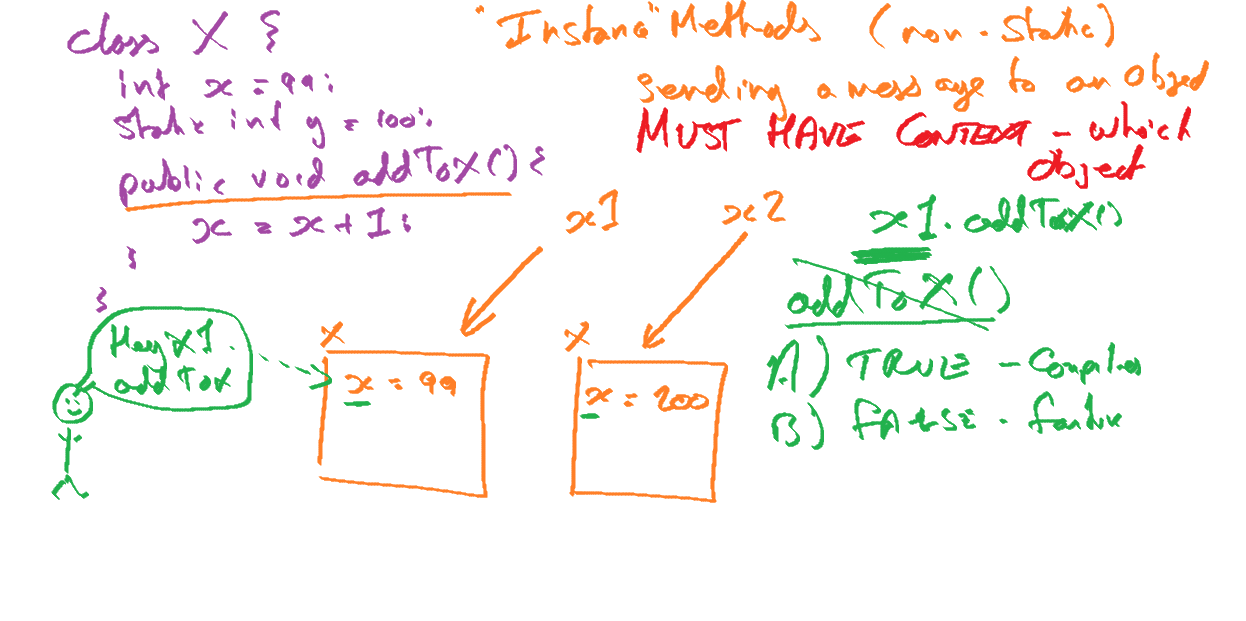 class X {
int x = 99;
static int y = 100;
public void addToX() {
x = x + 1;
}
}
"Instanc" Methods (non-static)
Sending a message to an Object
MUST HAVE CONTEXT - which
object
x1
x2
x1.addToX()
addToX()
A) TRUE - Compiles
B) FALSE - Failure
Hey X1.
addToX
X
x = 99
X
x = 200